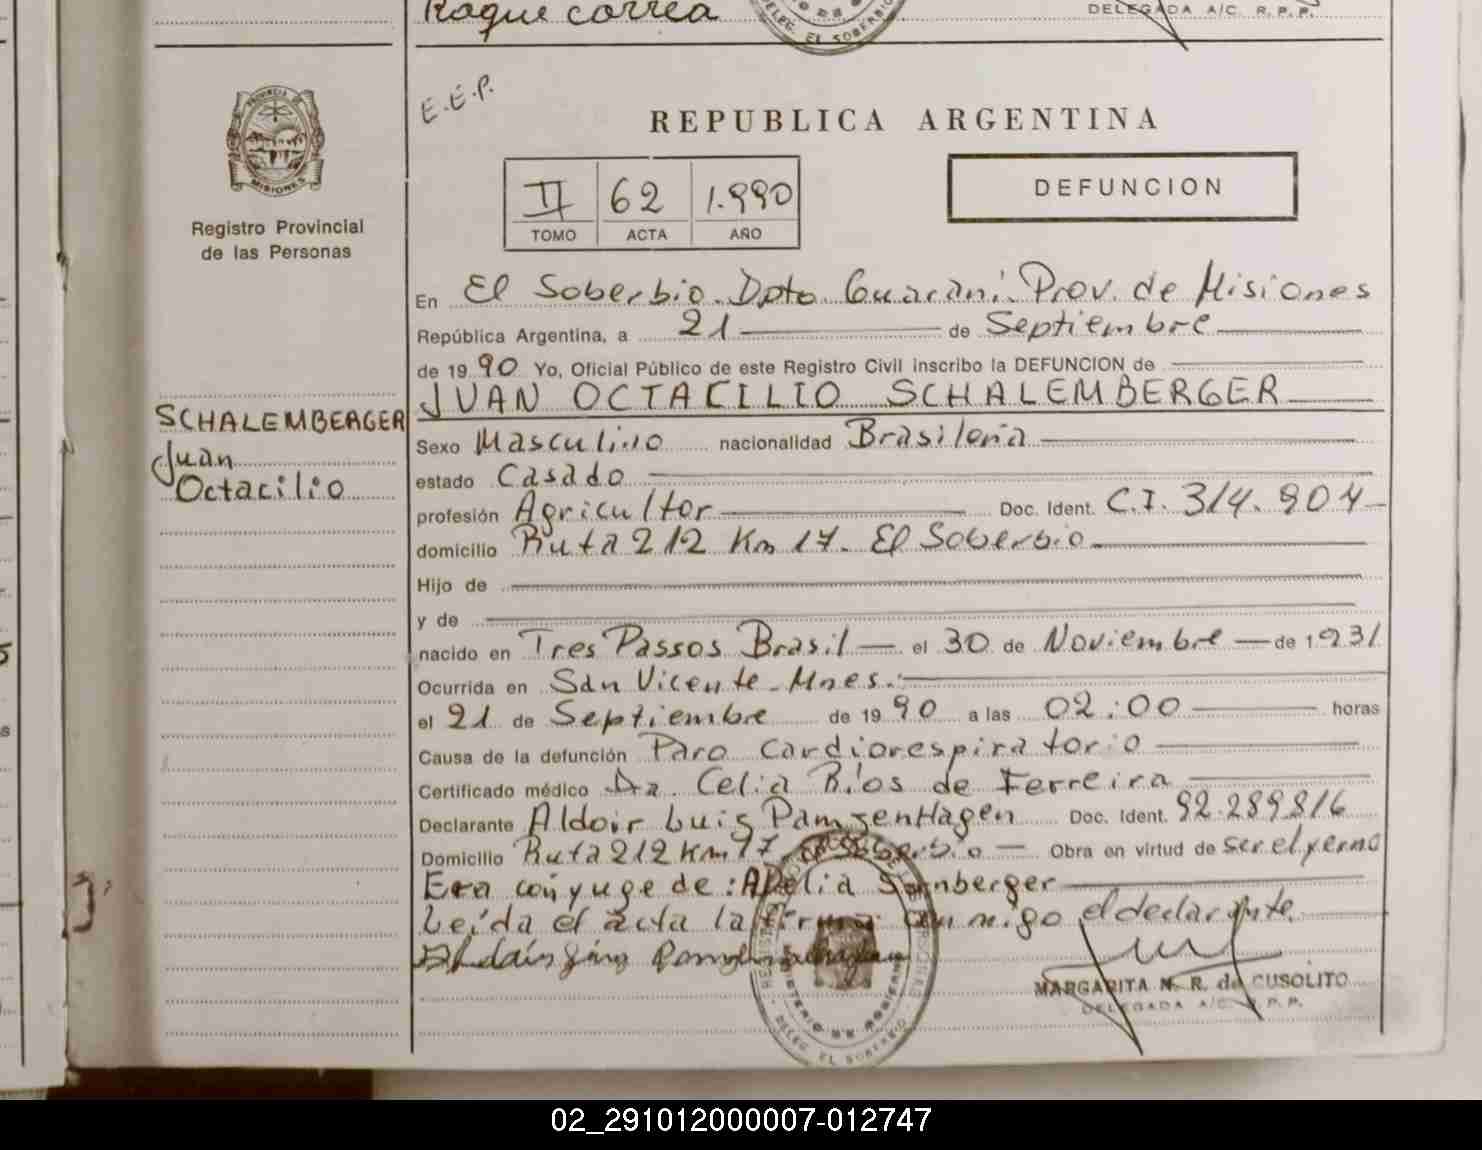 Roque correa
DELEG. EL SOBERBIO
DELEGADA A/C. R.P.P.
E.E.P.
PROVINCIA DE
MISIONES
Registro Provincial
de las Personas
REPUBLICA ARGENTINA
II 62 1.990
TOMO ACTA AÑO
DEFUNCION
En El Soberbio. Dpto Guaraní. Prov. de Misiones
República Argentina, a 21 de Septiembre
de 19 90 Yo, Oficial Público de este Registro Civil inscribo la DEFUNCION de
JUAN OCTACILIO SCHALEMBERGER
SCHALEMBERGER
Juan
Octacilio
Sexo Masculino nacionalidad Brasileña
estado Casado
profesión Agricultor Doc. Ident. C.I. 314.904
domicilio Ruta 212 Km 17. El Soberbio
Hijo de
y de
nacido en Tres Passos Brasil el 30 de Noviembre de 1.931
Ocurrida en San Vicente - Mnes.
el 21 de Septiembre de 19 90 a las 02:00 horas
Causa de la defunción Paro Cardiorespiratorio
Certificado médico Dra. Celia Ríos de Ferreira
Declarante Aldoir Luis PamzenHagen Doc. Ident. 92.289.816
Domicilio Ruta 212 Km 17. El Soberbio Obra en virtud de ser el yerno
Era cónyuge de: Adelia Sornberger
Leída el acta la firma conmigo el declarante.
MARGARITA N. R. de CUSOLITO
DELEGADA A/C. R.P.P.
DELEG. EL SOBERBIO
02_291012000007-012747